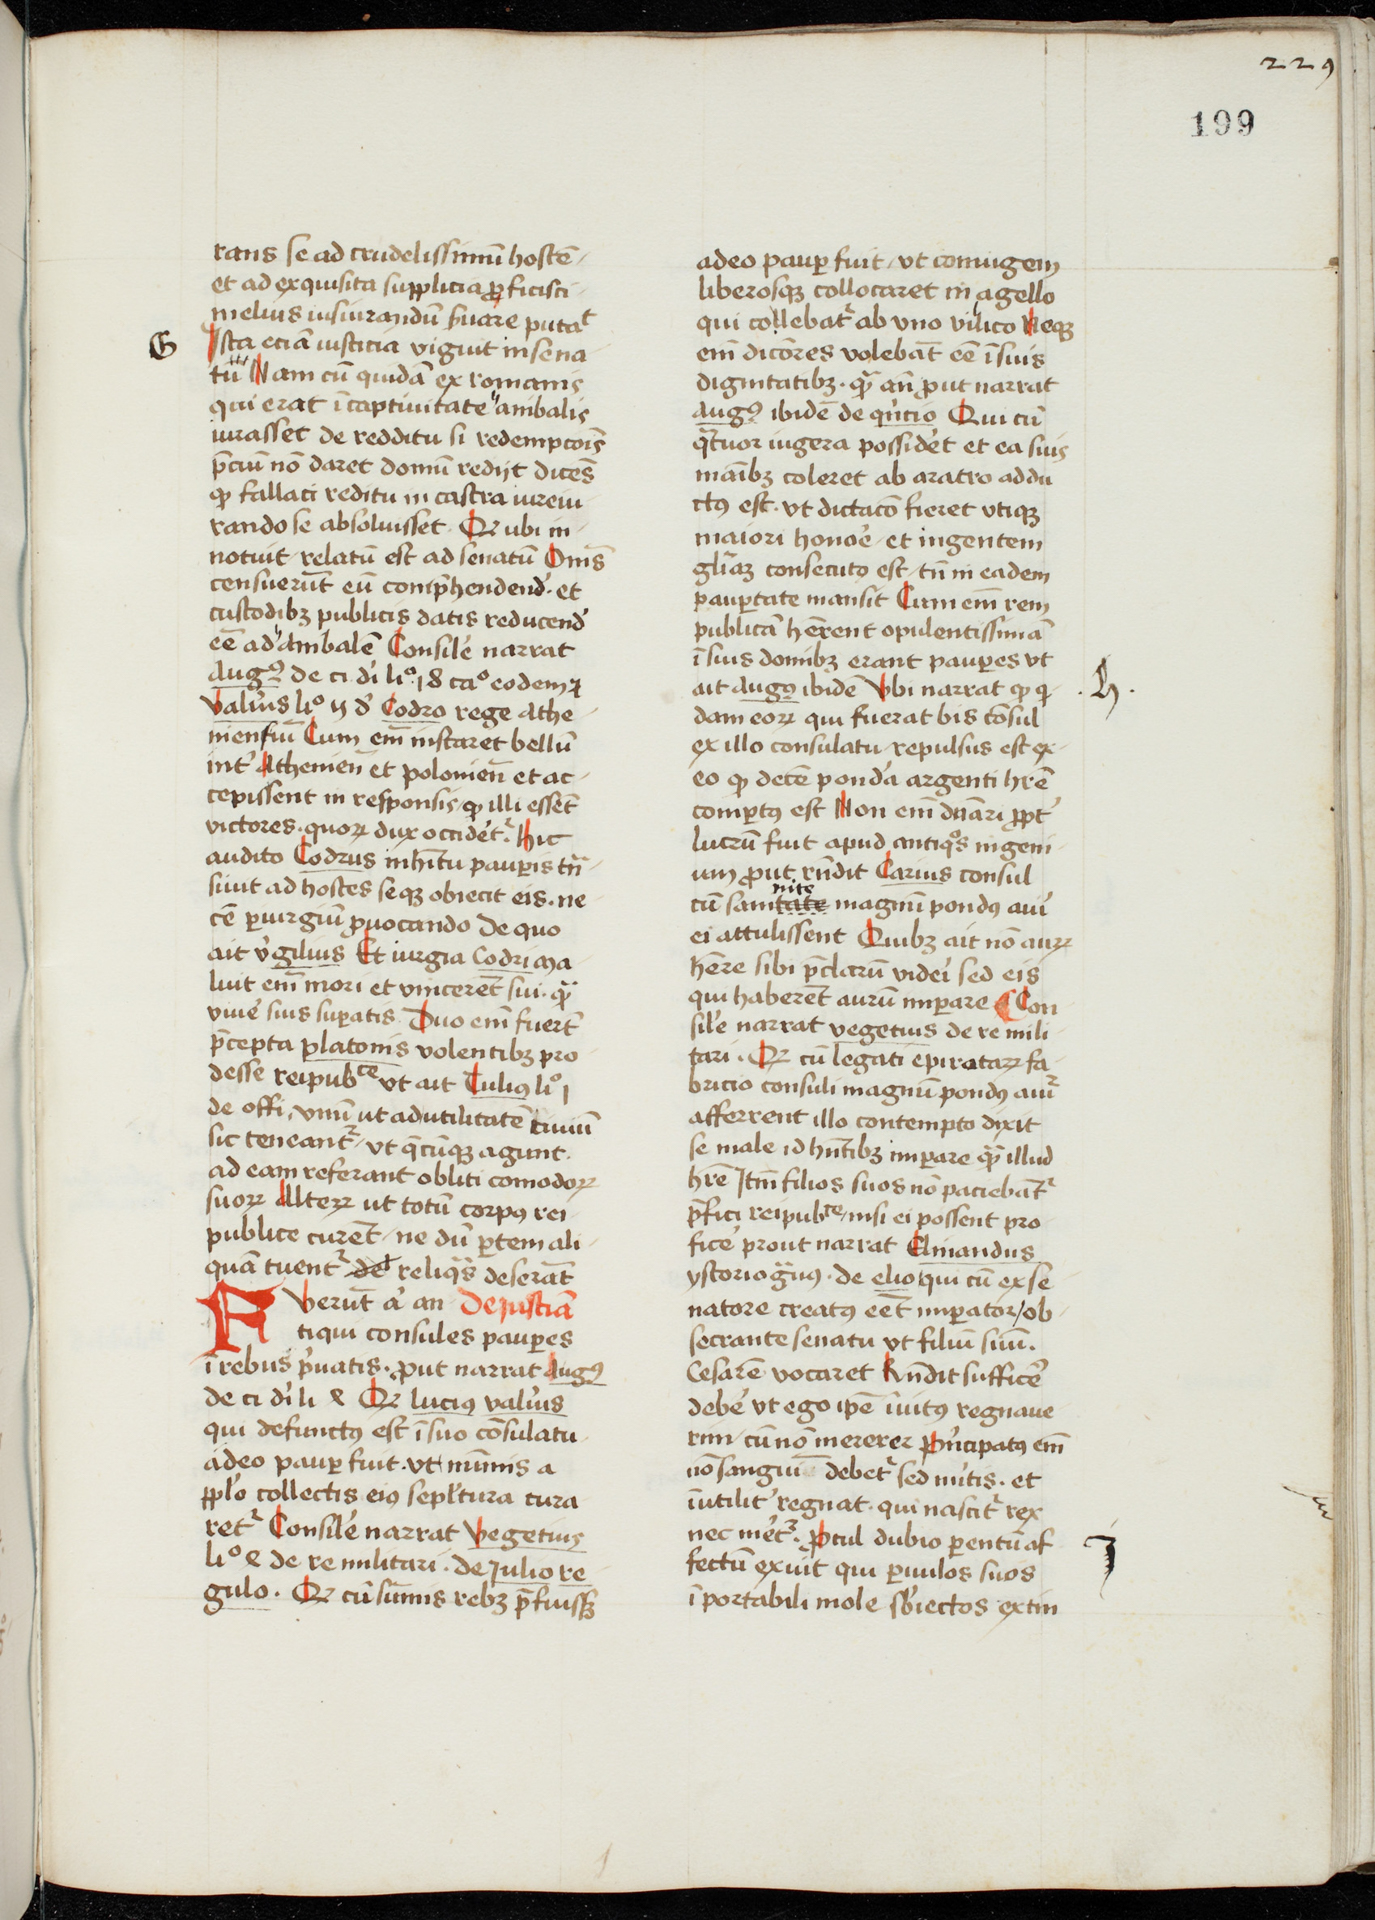 229
199
rans se ad crudelissimū hostē
et ad exquisita supplicia ꝓficisci
melius iusiurandū ẜuare putat
G
Ista eciā iusticia viguit in sena
tu Nam cū quidā ex romanis
qui erat ī captiuitate anibalis
iurasset de redditu si redempcōis
p̄ciū nō daret domū redijt dicēs
ꝙ fallaci reditu in castra iureiu
rando se absoluisset Qꝛ ubi in
notuit relatū est ad senatū Om̄s
censuerūt eū comp̄hendend' et
custodibꝫ publicis datis reducend'
eē ad Anibalē Consile' narrat
Augꝰ de ci di' liº 18 caº eodemꝫ
Valiꝰus liº ij d' Codro rege Athe
niensiū Cum em̄ instaret bellū
int' Athenien̄ et polonien̄ et ac
cepissent in responsis ꝙ illi essēt
victores quoꝝ dux occideret' hic
audito Codrus in hītu pauꝑis tn̄
siuit ad hostes seqꝫ obiecit eis ne
cē ꝑiurgiū ꝓuocando De quo
ait v'gilius Et iurgia Codri ma
luit em̄ mori et vincerēt sui qᷓ
viue' suis suꝑatis Duo em̄ fuerūt
p̄cepta platonis volentibꝫ pro
desse reipubce vt ait Tulius liº i
de offi vnū ut ad utilitatē ciuiū
sic teneant' vt q̄cūqꝫ agunt
ad eam referant obliti comodoꝝ
suoꝝ Alteꝝ ut totū corpꝰ rei
publice curēt ne dū ꝑtem ali
quā tuent' de reliqᷓs deserāt
Fverūt a' an De Justicia
tiqui consules pauꝑes
ī rebus p'uatis ꝓut narrat Augꝰ
de ci di' li & Qꝛ lucius valiꝰus
qui defunctꝰ est ī suo cōsulatu
adeo pauꝑ fuit vt nūmis a
pplo collectis eiꝰ sepl'tura cura
ret' Consile' narrat Vegetius
liº & de re militari de Julio re
gulo Qꝛ cū sūmis rebꝫ p̄fuissꝫ
adeo pauꝑ fuit vt coniugem
liberosqꝫ collocaret in agello
qui collebat' ab vno vilico Neqꝫ
em̄ dicōres volebāt eē ī suis
dignitatibꝫ qᷓ an̄ ꝓut narrat
Augꝰ ibidē de q'ntio Qui cū
qᷓtuor iugera possidet et ea suis
manibꝫ coleret ab aratro addu
ctꝰ est vt dictato fieret vtiqꝫ
maiori honoe' et ingentem
gliaꝫ consecutꝰ est tn̄ in eadem
pauꝑtate mansit Cum em̄ rem
publicā hēent opulentissimā
ī suis domibꝫ erant pauꝑes vt
.h.
ait Augꝰ ibidē Vbi narrat ꝙ qi
dam eoꝝ qui fuerat bis cōsul
ex illo consulatu repulsus est ex
eo ꝙ decē pondꝰa argenti hr̄e
comꝑtꝰ est Non em̄ dn̄ari ppt'
lucrū fuit apud antiqos ingeni
um ꝓut rn̄dit Carius consul
cū samnite magnū pondꝰ aui'
ei attulissent Quibꝫ ait nō auꝝ
hēre sibi p̄clarū videi' sed eis
qui haberēt aurū imꝑare Con
sile' narrat vegetius de re mili
tari Qꝛ cū legati epirataꝝ fa
bricio consuli magnū pondꝰ aui'
afferrent illo contempto dixit
se male id hn̄tibꝫ imꝑare qᷓ illud
hr̄e Itm̄ filios suos nō paciebāt'
p̄fici reipubce nisi ei possent pro
fice' prout narrat Elinandus
ystoriogᷓus de elio qui cū ex se
natore creatꝰ eēt imꝑator ob
secrante senatu vt filiū suū
Cesarē vocaret Rn̄dit suffice'
debe' vt ego ip̄e iuitꝰ regnaue
rim cū nō mererer Pn'cipatꝰ em̄
nō sangui debet' sed mitis et
iutilit' regnat qui nascit' rex
nec met' ꝓcul dubio ꝑentū af
J
fectū exuit qui ꝑuulos suos
ī portabili mole sb'iectos extin